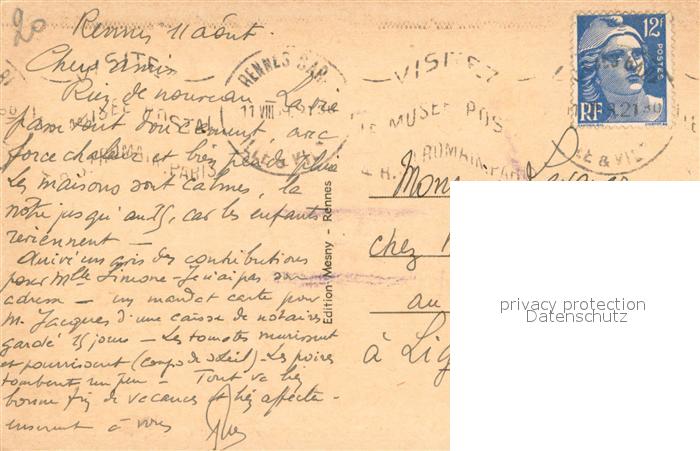 20
Rennes 11 août.
Chers amis
Rien de nouveau. La vie
passe tout doucement, avec
force chaleur et bien peu de pluie
Les maisons sont calmes, la
notre jusqu'au 25, car les enfants
reviennent –
Arrivé un avis des contributions
pour Mlle Simone – Je n'ai pas son
adresse – un mandat carte pour
M. Jacques d'une caisse de notaires
gardé 15 jours – Les tomates murissent
et pourrissent (coups de soleil) – Les poires
tombent un peu – Tout va bien
bonne fin de vacances et bien affectu-
eusement à vous
Edition Mesny - Rennes
12F
POSTES
RF
RENNES GARE
VISITEZ
LE MUSEE POSTAL
4 R. ST ROMAIN-PARIS
ILLE & VILAINE
chez
au
à Lig
privacy protection
Datenschutz